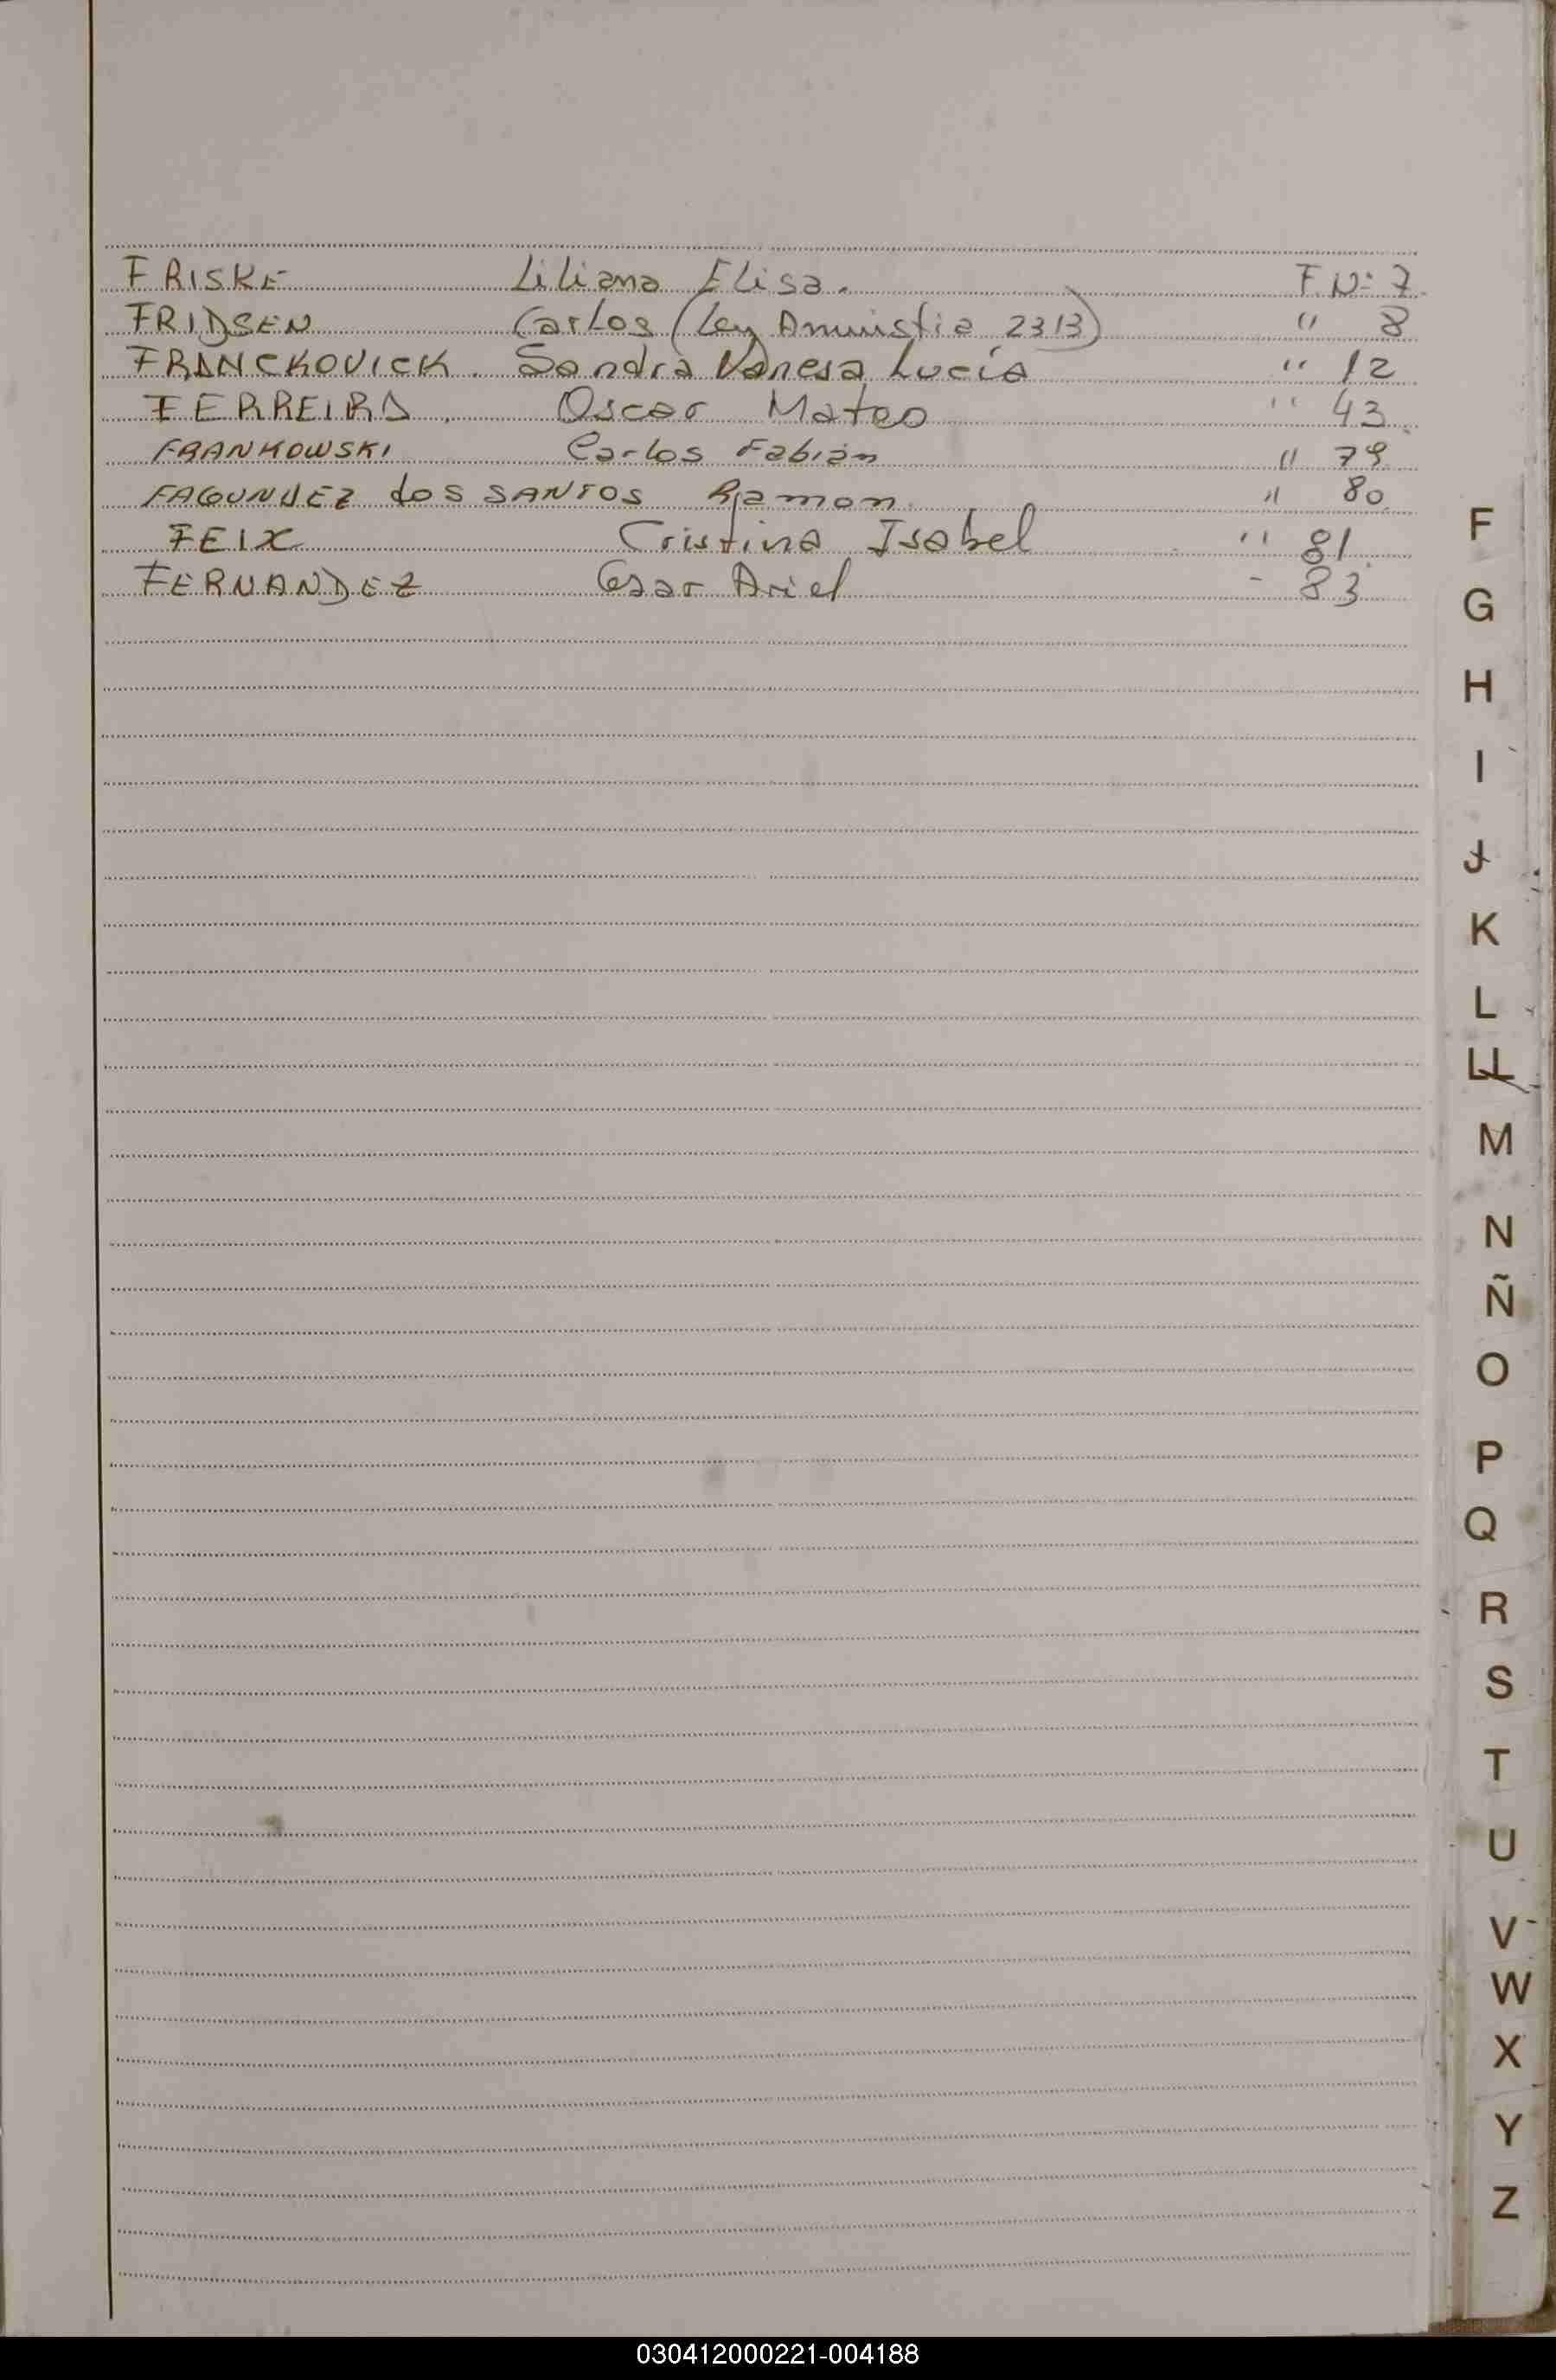 FRISKE Liliana Elisa. F.Nº 7
FRIDSEN Carlos (Ley Amnistia 2313) " 8
FRANCKOVICK. Sandra Vanesa Lucía " 12
FERREIRA Oscar Mateo " 43
FRANKOWSKI Carlos Fabián " 79
FAGUNDEZ dos SANTOS Ramon. " 80
FEIX Cristina Isabel " 81
FERNANDEZ Cesar Ariel - 83
F
G
H
I
J
K
L
LL
M
N
Ñ
O
P
Q
R
S
T
U
V
W
X
Y
Z
030412000221-004188